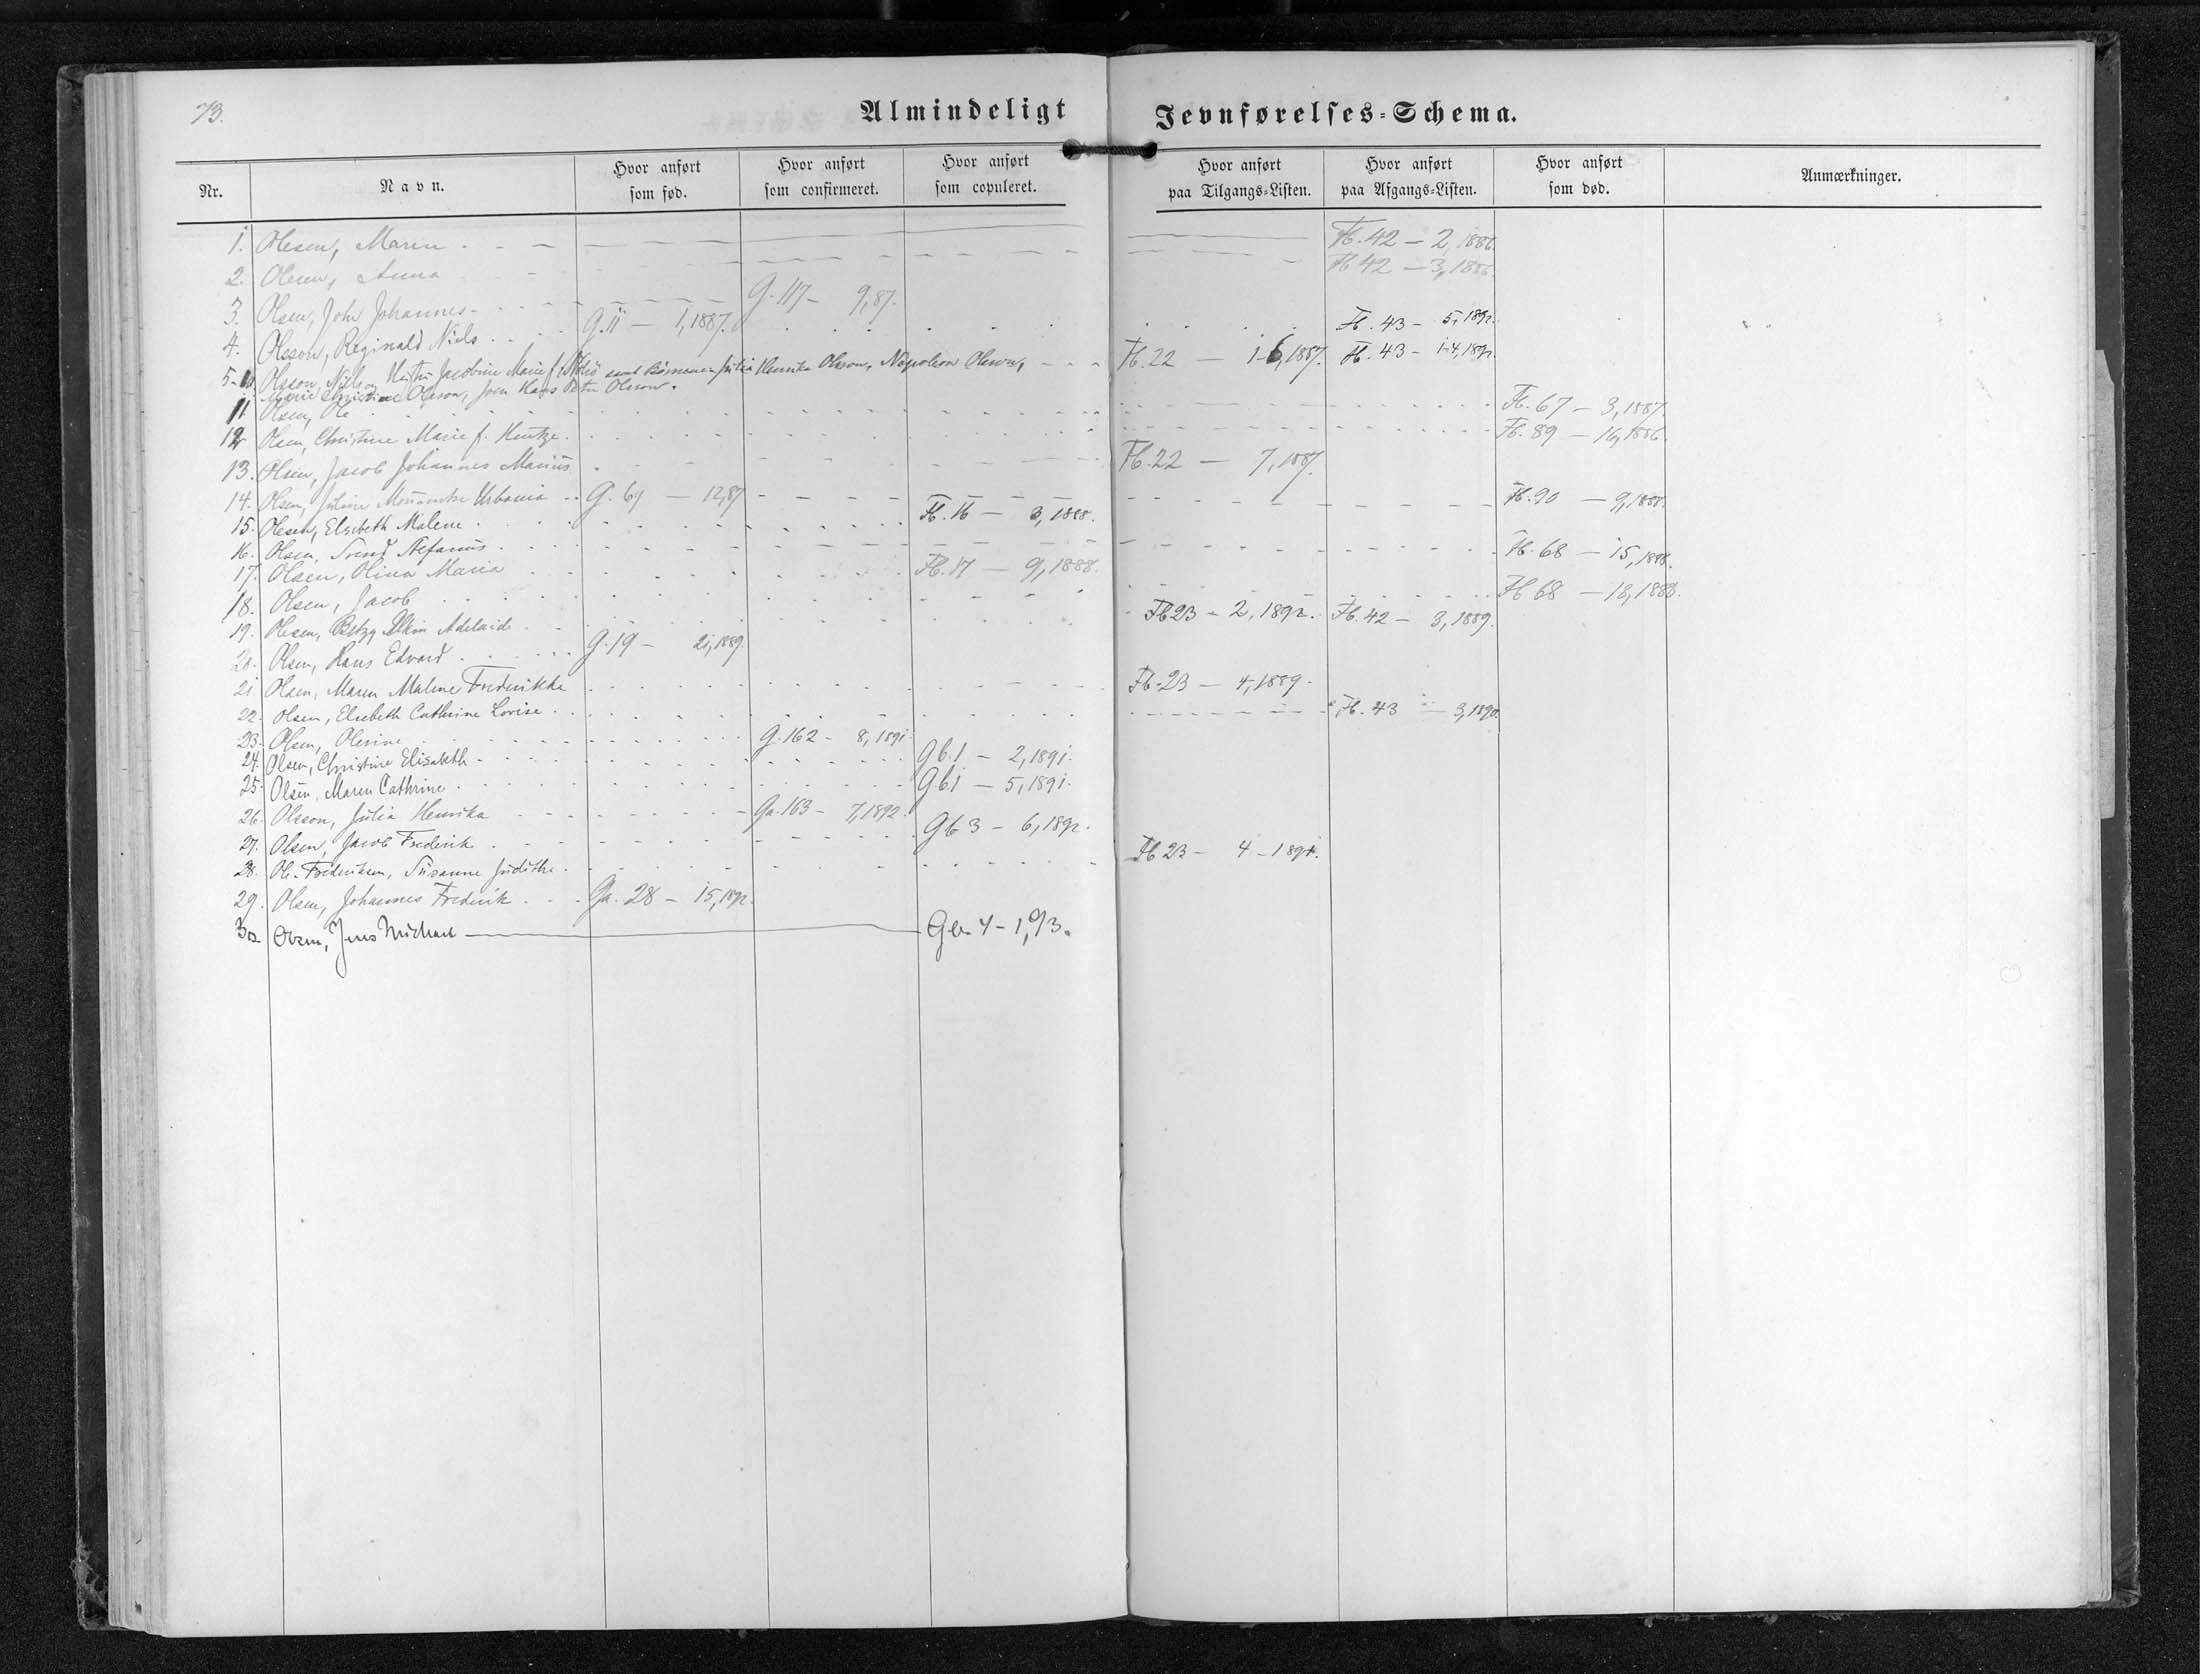 73.
Almindeligt Jevnførelses-Schema.
Nr. Navn. Hvor anført som fød. Hvor anført som confirmeret. Hvor anført som copuleret. Hvor anført paa Tilgangs-Listen. Hvor anført paa Afgangs-Listen. Hvor anført som død. Anmærkninger.
1. Olesen, Maren Fb. 42 - 2, 1886.
2. Olesen, Anna Fb 42 - 3, 1886.
3. Olsen, John Johannes G. 117 - 9, 87.
4. Olsson, Reginald Niels G. 11 - 1, 1887. Fb. 43 - 5, 1892.
5-10. Olsson, Nils og Hustru Jacobine Marie f. samt Børnene Julia Henrika Olsson, Napoleon Olsson, Fb. 22 - 1-6, 1887. Fb. 43 - 1-4, 1892.
Marie Christine Olsson, Hans Peter Olsson.
11 Olsen, Ole Fb. 67 - 3, 1887
12 Olsen, Christine Marie f. Hentze. Fb. 89 - 16, 1886.
13. Olsen, Jacob Johannes Marius Fb. 22 - 7, 1887.
14. Olsen, Juline Urbania G. 69 - 12, 87 Fb. 90 - 9, 1888.
15. Olesen, Elsebeth Malene Fb. 16 - 3, 1888.
16. Olsen, Svend Stefanus Fb. 68 - 15, 1888.
17. Olsen, Olina Maria Fb. 17 - 9, 1888.
18. Olsen, Jacob Fb 68 - 18, 1888.
19. Olesen, Betzy Adelaide Fb 23 - 2, 1892. Fb. 42 - 3, 1889.
20. Olsen, Hans Edvard G. 19 - 21, 1889.
21 Olsen, Maren Malene Frederikke Fb. 23 - 4, 1889.
22. Olsen, Elsebeth Cathrine Lovise Fb. 43 - 3, 1890.
23. Olsen, Olevine G. 162 - 8, 1891
24. Olsen, Christine Elisabeth Gb. 1 - 2, 1891.
25. Olsen, Maren Cathrine Gb 1 - 5, 1891.
26. Olsson, Julia Henrika Ga. 163 - 7, 1892.
27. Olsen, Jacob Frederik Gb 3 - 6, 1892.
28. Ole-Frederiksen, Susanne Judithe Fb 23 - 4 - 1891.
29. Olsen, Johannes Frederik Ga. 28 - 15, 1892.
30. Olsen, Jens Michael Gb. 4 - 1, 93.